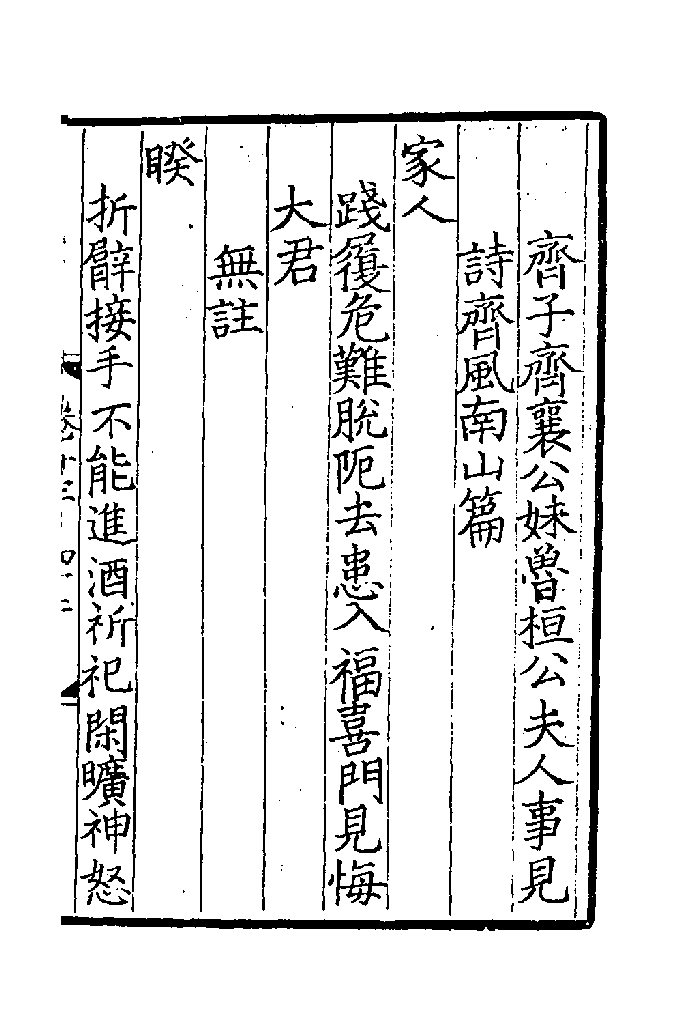 齊子齊襄公妹魯桓公夫人事見
詩齊風南山篇
家人
踐履危難脫阨去患入福喜門見悔
大君
無註
睽
折臂接手不能進酒祈祀閑曠神怒